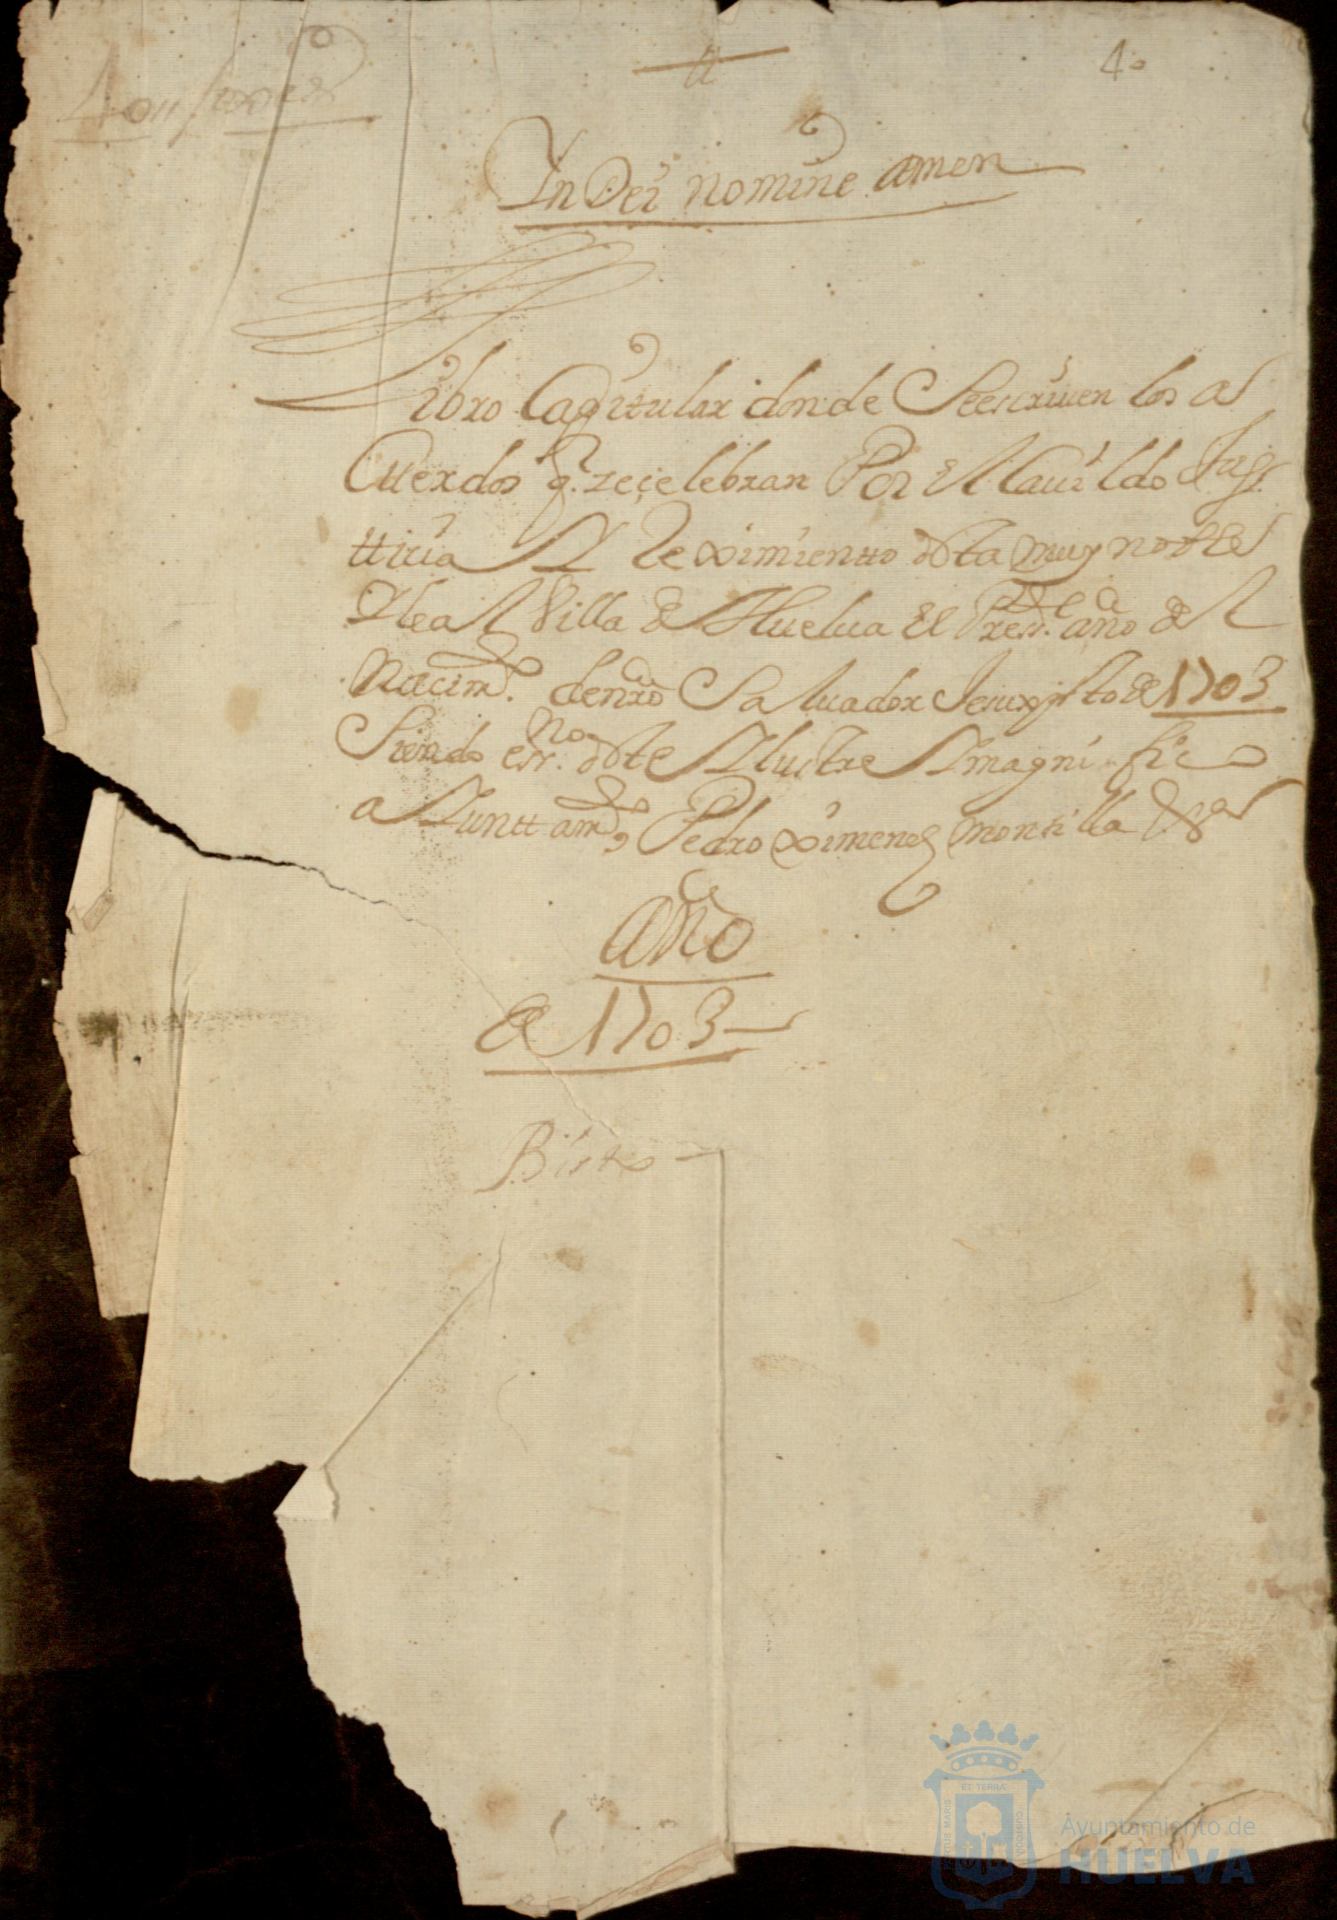 4º
In Dei nomine amen
Libro Capitular donde Seescriuen los a
Cuerdos q. seçelebran Por el Cauildo Jus
tticia Y Reximientto desta muy noble
Y leal Villa de Huelua El Press.te año del
Nacimto. denrō Saluador Jesuxpto de 1703
Siendo essno. deste Yllustre Ymagnifico
aYunttamto, Pedro Ximenez montilla
año
de 1703
Bisto
ET TERRÆ
PORTUS MARIS
CUSTODIA
Ayuntamiento de
HUELVA